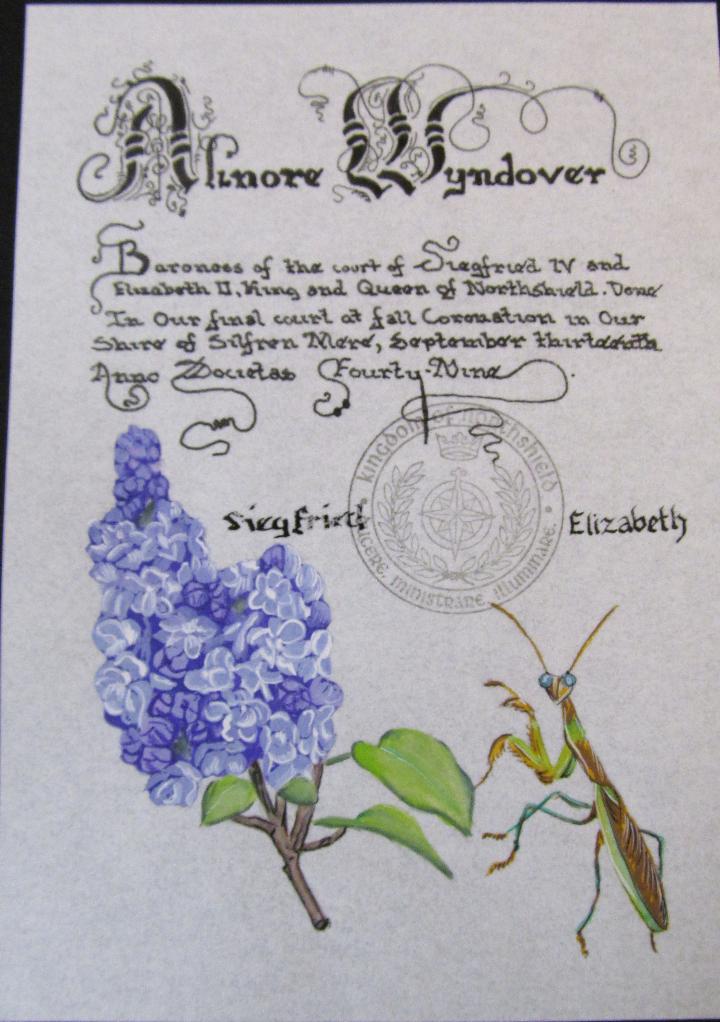 Alinore Wyndover
Baroness of the court of Siegfried IV and
Elizabeth II, King and Queen of Northshield. Done
In Our final court at fall Coronation in Our
Shire of Silfren Mere, September thirteenth
Anno Societas Fourty-Nine.
kingdom of northshield
Siegfried Elizabeth
ducere, ministrare, illuminare.